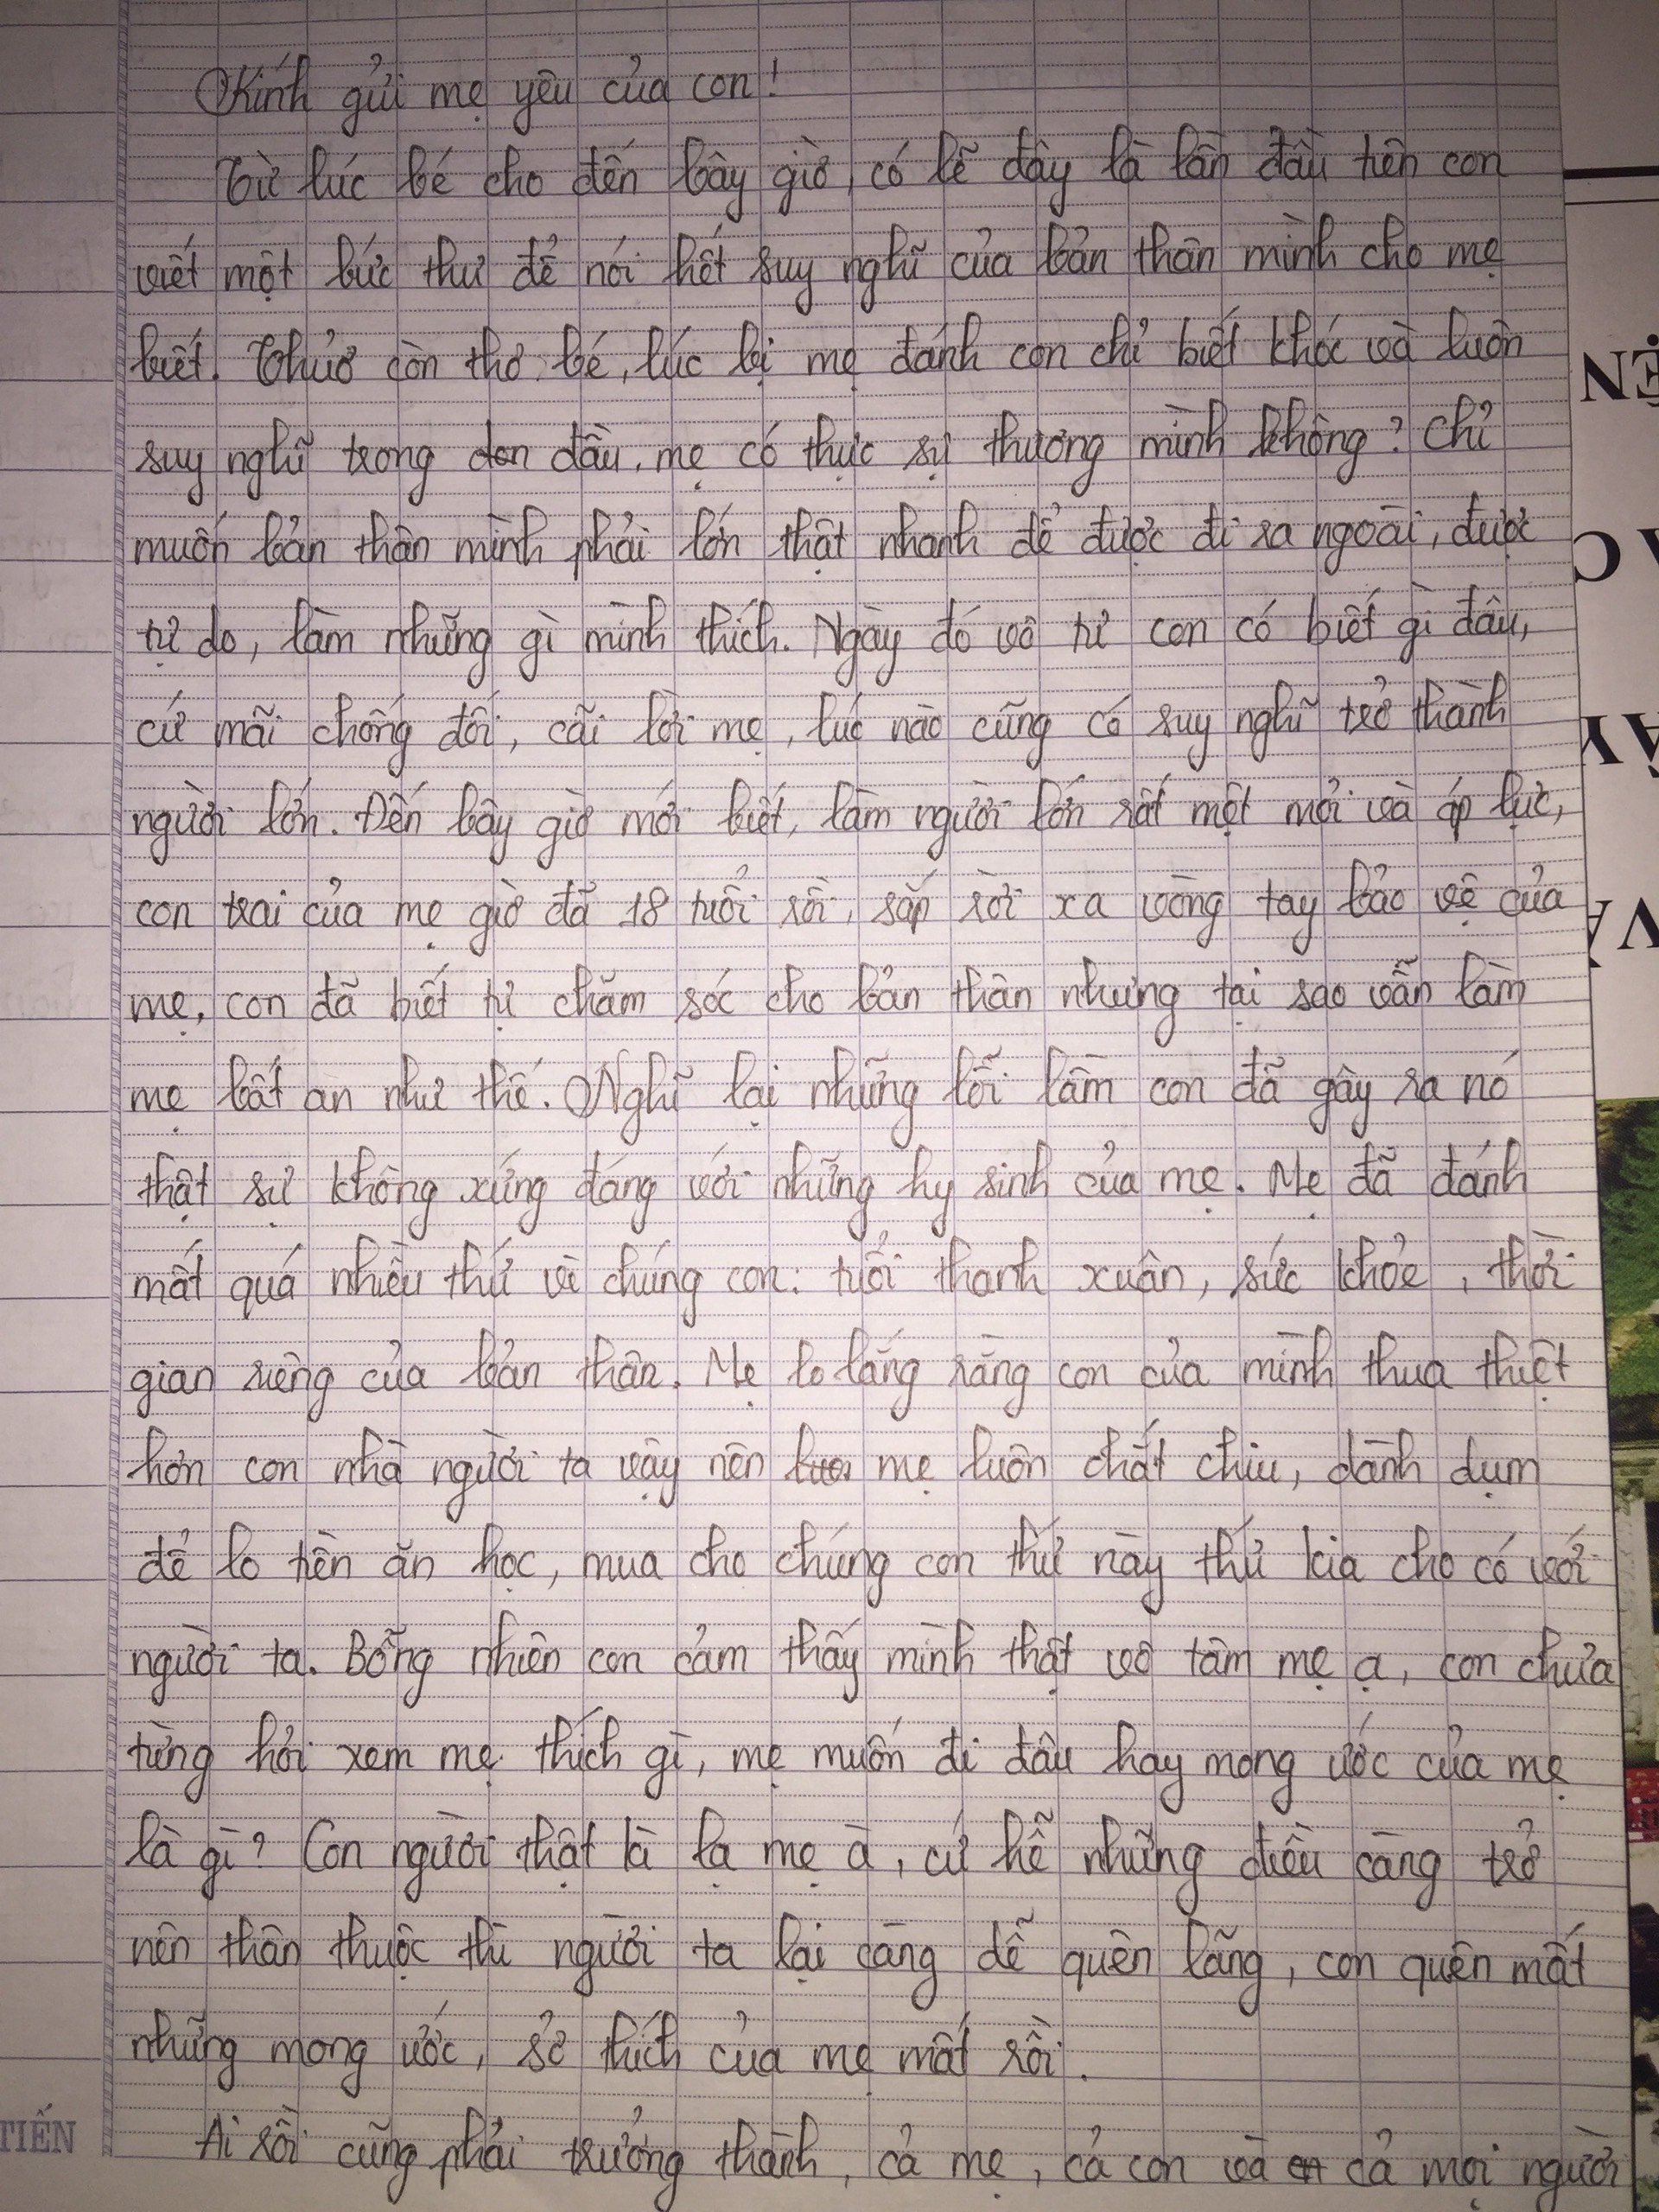 Kính gửi mẹ yêu của con!
Từ lúc bé cho đến bây giờ, có lẽ đây là lần đầu tiên con
viết một bức thư để nói hết suy nghĩ của bản thân mình cho mẹ
biết. Thuở còn thơ bé, lúc bị mẹ đánh con chỉ biết khóc và luôn
suy nghĩ trong đầu, mẹ có thực sự thương mình không? Chỉ
muốn bản thân mình phải lớn thật nhanh để được đi ra ngoài, được
tự do, làm những gì mình thích. Ngày đó vô tư con có biết gì đâu,
cứ mãi chống đối, cãi lời mẹ, lúc nào cũng có suy nghĩ trở thành
người lớn. Đến bây giờ mới biết, làm người lớn rất mệt mỏi và áp lực,
con trai của mẹ giờ đã 18 tuổi rồi, sắp rời xa vòng tay bảo vệ của
mẹ, con đã biết tự chăm sóc cho bản thân nhưng tại sao vẫn làm
mẹ bất an như thế. Nghĩ lại những lỗi lầm con đã gây ra nó
thật sự không xứng đáng với những hy sinh của mẹ. Mẹ đã đánh
mất quá nhiều thứ vì chúng con: tuổi thanh xuân, sức khỏe, thời
gian riêng của bản thân. Mẹ lo lắng rằng con của mình thua thiệt
hơn con nhà người ta vậy nên mẹ luôn chắt chiu, dành dụm
để lo tiền ăn học, mua cho chúng con thứ này thứ kia cho có với
người ta. Bỗng nhiên con cảm thấy mình thật vô tâm mẹ ạ, con chưa
từng hỏi xem mẹ thích gì, mẹ muốn đi đâu hay mong ước của mẹ
là gì? Con người thật là lạ mẹ à, cứ hễ những điều càng trở
nên thân thuộc thì người ta lại càng dễ quên lãng, con quên mất
những mong ước, sở thích của mẹ mất rồi.
Ai rồi cũng phải trưởng thành, cả mẹ, cả con và cả mọi người
TIẾN